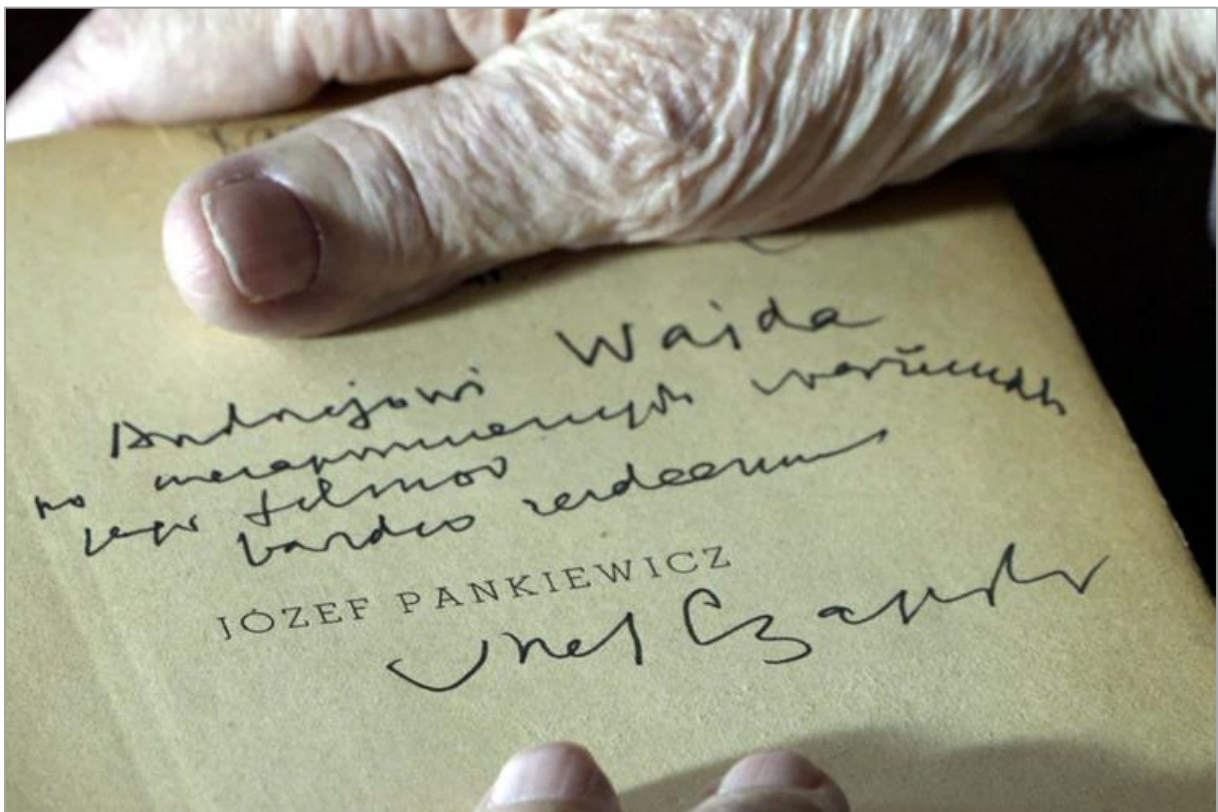 Andrzejowi Wajda
po niezapomnianych wrażeniach
jego filmów
bardzo serdecznie
JÓZEF PANKIEWICZ
Józef Czapski